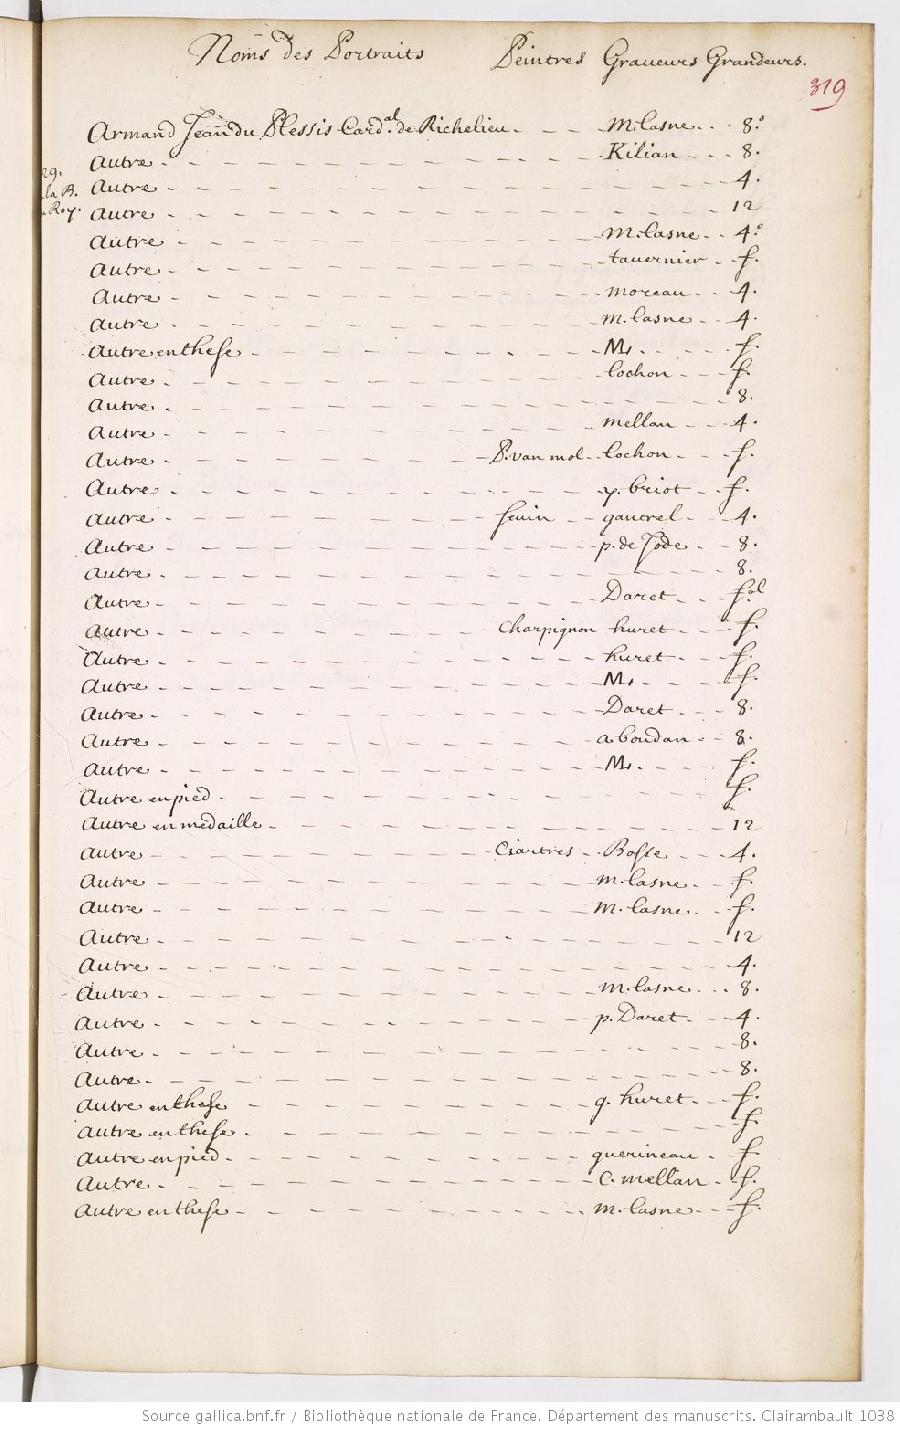 Noms des Portraits Peintres Graveurs Grandeurs.
319
Armand Jean du Plessis Card.al de Richelieu. M. lasne 8.o
Autre Kilian 8.
29.
la B.
Roy.
Autre 4.
Autre 12
Autre M. lasne 4.o
Autre tavernier f.
Autre moreau 4.
Autre m. lasne 4.
Autre en these M. f.
Autre lochon f.
Autre 8.
Autre mellan 4.
Autre P. van mol lochon f.
Autre y. briot f.
Autre gantrel 4.
Autre p. de Jode 8.
Autre 8.
Autre Daret f.ol
Autre Charpignon huret f.
Autre huret f.
Autre M. f.
Autre Daret 8.
Autre a. boudan 8.
Autre M. f.
Autre en pied f.
Autre en medaille 12
Autre Ciartres Bosse 4.
Autre m. lasne f.
Autre m. lasne f.
Autre 12
Autre 4.
Autre m. lasne 8.
Autre p. Daret 4.
Autre 8.
Autre 8.
Autre en these g. huret f.
Autre en these f.
Autre en pied guerineau f.
Autre C. mellan f.
Autre en these m. lasne f.
Source gallica.bnf.fr / Bibliothèque nationale de France. Département des manuscrits. Clairambault 1038